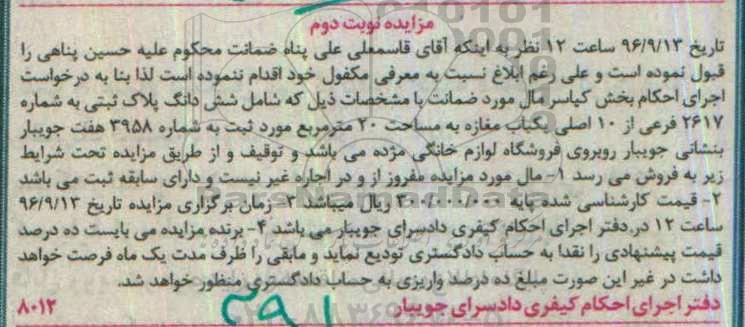 مزایده نوبت دوم
تاریخ ۹۶/۹/۱۳ ساعت ۱۲ نظر به اینکه آقای قاسمعلی علی پناه ضمانت محکوم علیه حسین پناهی را
قبول نموده است و علی رغم ابلاغ نسبت به معرفی مکفول خود اقدام ننموده است لذا بنا به درخواست
اجرای احکام بخش کیاسر مال مورد ضمانت با مشخصات ذیل که شامل شش دانگ پلاک ثبتی به شماره
۲۶۱۷ فرعی از ۱۰ اصلی یکباب مغازه به مساحت ۲۰ مترمربع مورد ثبت به شماره ۳۹۵۸ هفت جویبار
بنشانی جویبار روبروی فروشگاه لوازم خانگی مژده می باشد و توقیف و از طریق مزایده تحت شرایط
زیر به فروش می رسد ۱- مال مورد مزایده مفروز از و در اجاره غیر نیست و دارای سابقه ثبت می باشد
۲- قیمت کارشناسی شده پایه ۳۰۰/۰۰۰/۰۰۰ ریال میباشد ۳- زمان برگزاری مزایده تاریخ ۹۶/۹/۱۳
ساعت ۱۲ در دفتر اجرای احکام کیفری دادسرای جویبار می باشد ۴- برنده مزایده می بایست ده درصد
قیمت پیشنهادی را نقدا به حساب دادگستری تودیع نماید و مابقی را ظرف مدت یک ماه فرصت خواهد
داشت در غیر این صورت مبلغ ده درصد واریزی به حساب دادگستری منظور خواهد شد.
دفتر اجرای احکام کیفری دادسرای جویبار
۸۰۱۲
۲۹۱
ParsNamadData